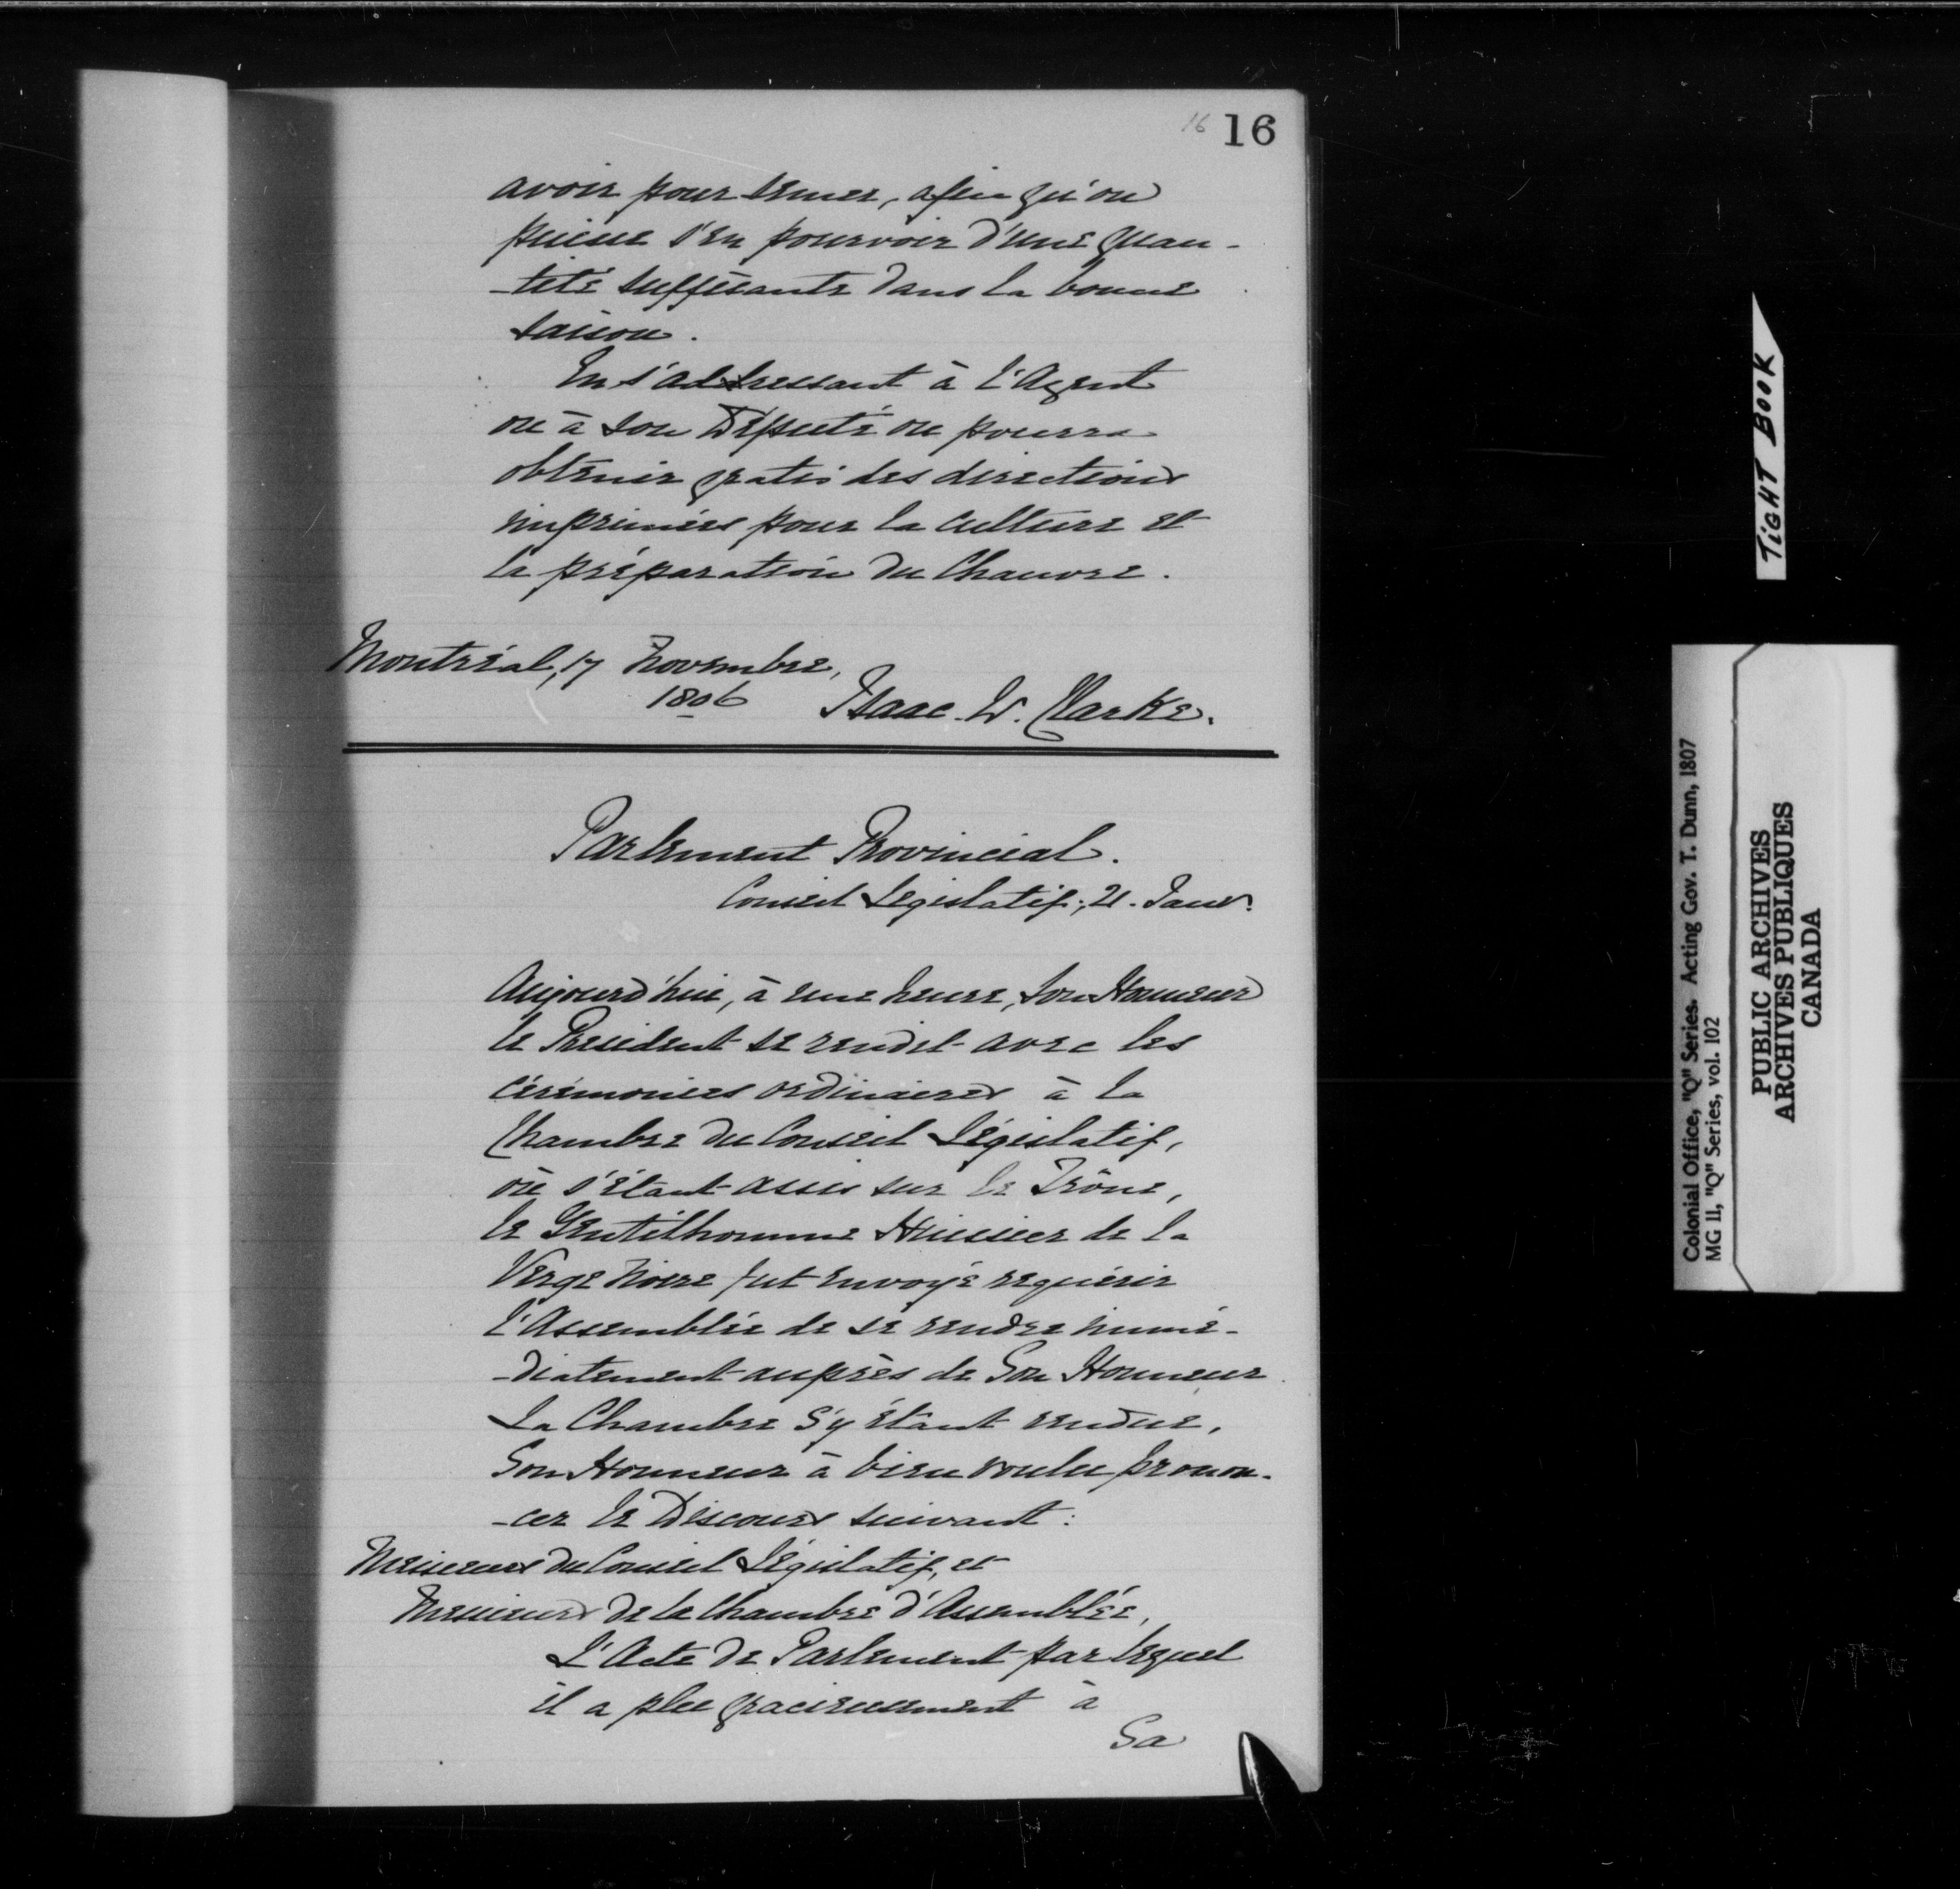 16 16
avoir pour semer, afin qu'on
puisse s'en pourvoir d'une quan-
-tité suffisante dans la bonne
saison.
En s'addressant à l'Agent
ou à son Député on pourra
obtenir gratis des directions
imprimées pour la culture et
la préparation du Chanvre.
Montréal, 17 Novembre,
1806 Isaac. W. Clarke.
Parlement Provincial.
Conseil Législatif, 21. Janv.
Aujourd'hui, à une heure, Son Honneur
le President se rendit avec les
cérémonies ordinaires à la
Chambre du Conseil Législatif,
où s'étant assis sur le Trône,
le Gentilhomme Huissier de la
Verge Noire fut envoyé requérir
l'Assemblée de se rendre immé-
-diatement auprès de Son Honneur
La Chambre s'y étant rendue,
Son Honneur à bien voulu pronon-
-cer le Discours suivant:
Messieurs du Conseil Législatif, et
Messieurs de la Chambre d'Assemblée,
L'Acte de Parlement par lequel
il a plu gracieusement à
Sa
TIGHT BOOK
Colonial Office, "Q" Series. Acting Gov. T. Dunn, 1807
MG 11, "Q" Series, vol. 102
PUBLIC ARCHIVES
ARCHIVES PUBLIQUES
CANADA